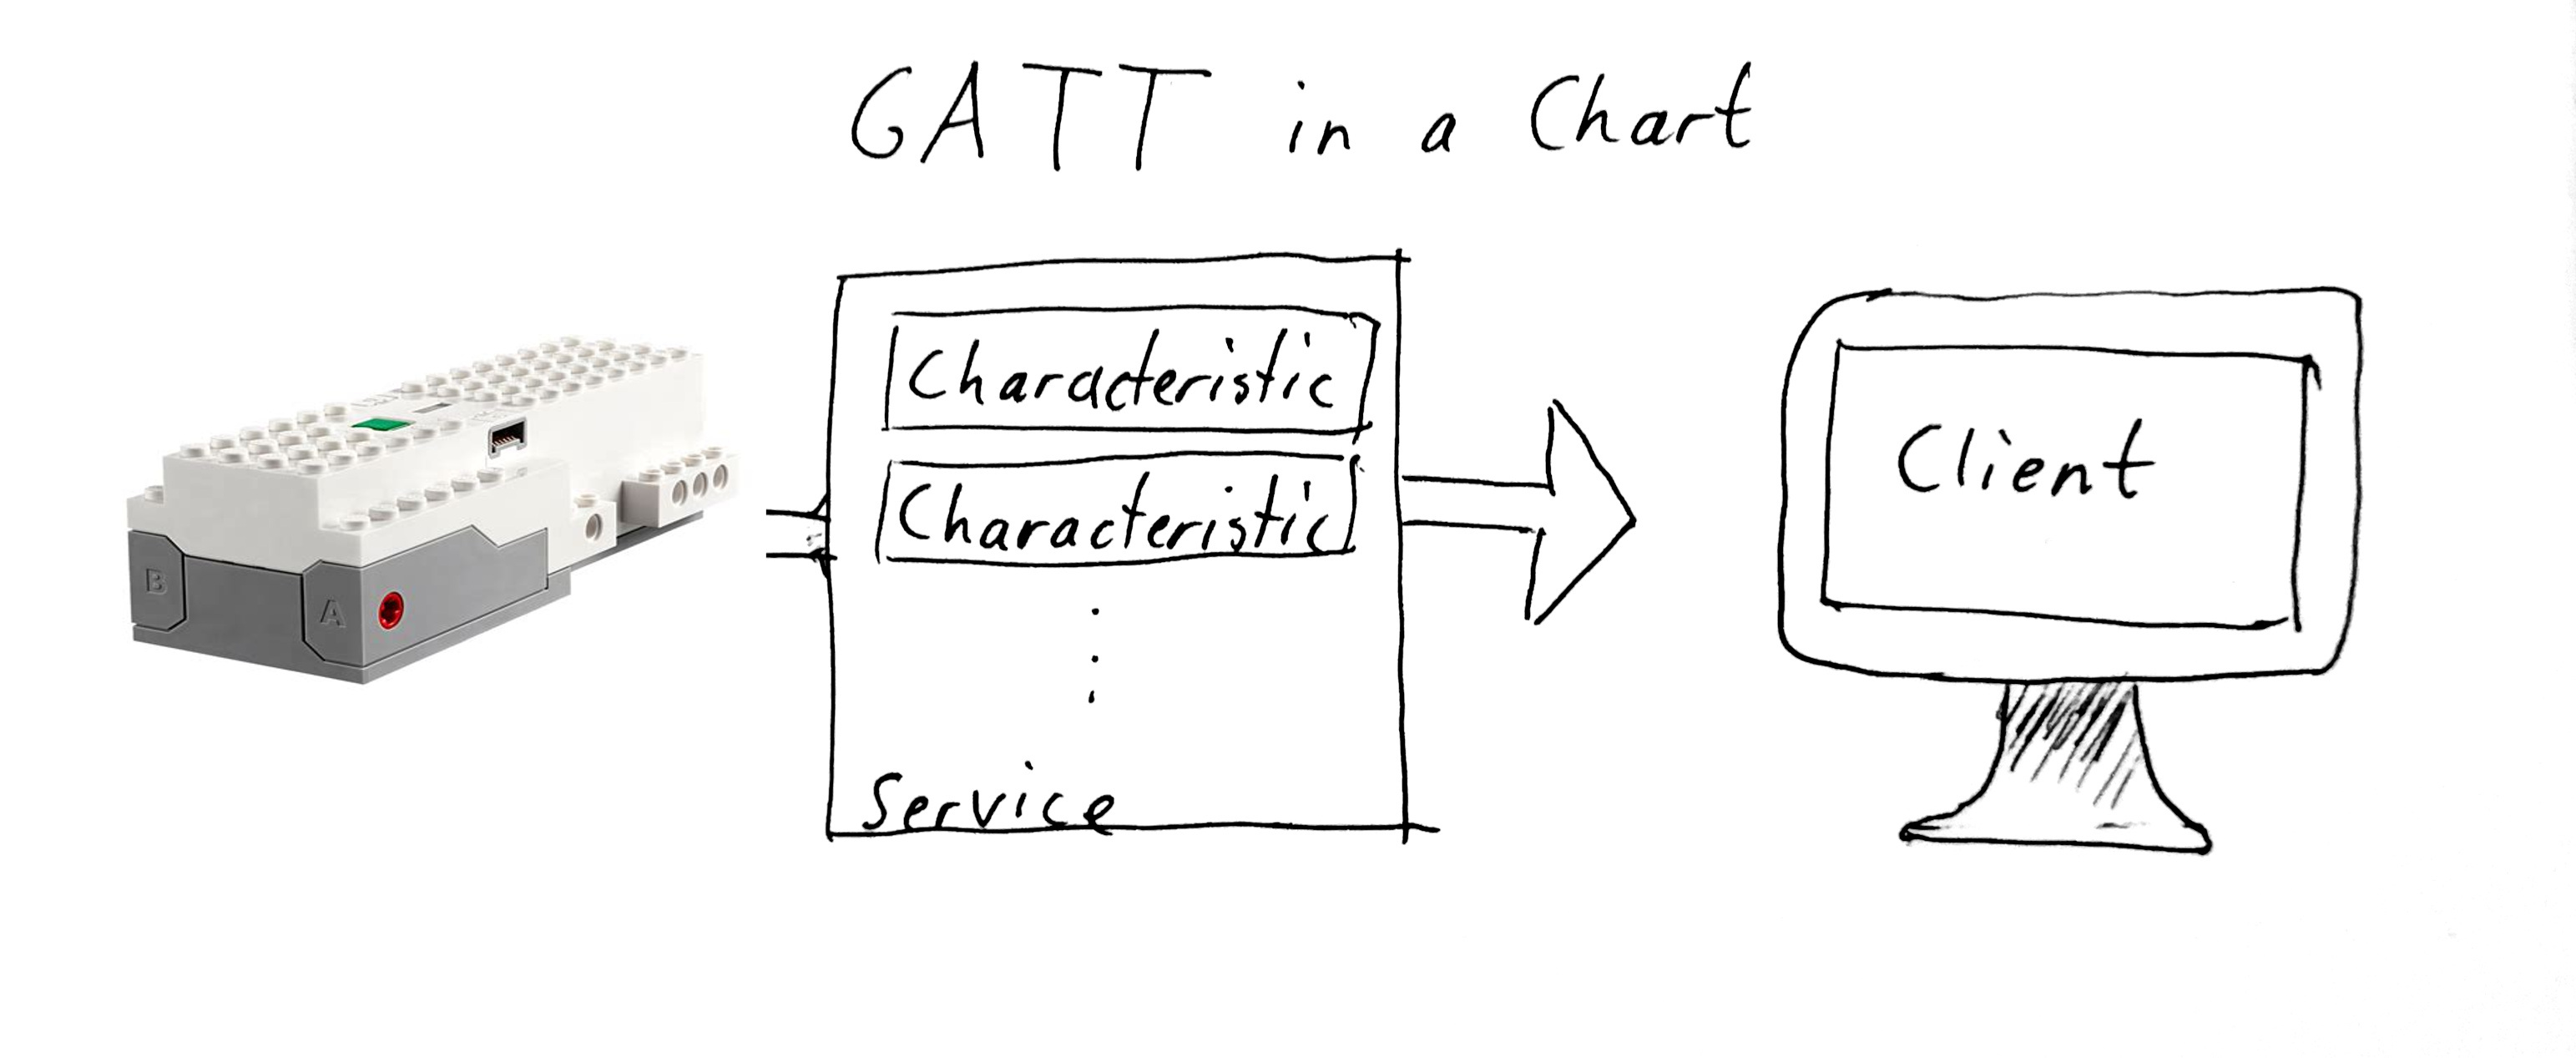 GATT in a Chart
Characteristic
Characteristic
Service
Client
B
A